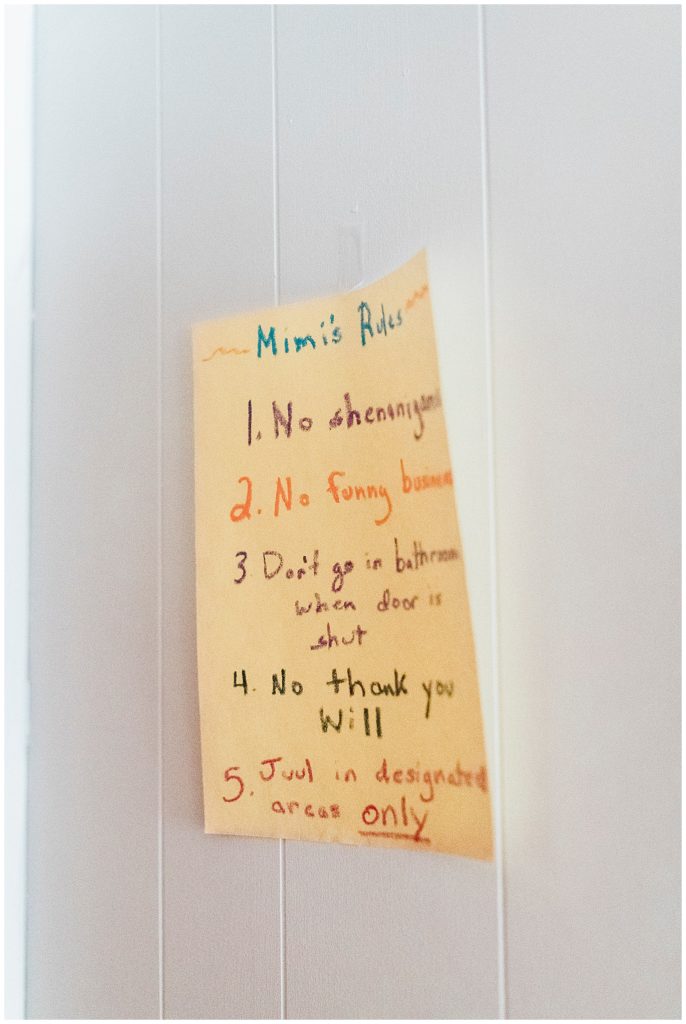 Mimi's Rules
1. No shenanigans
2. No funny business
3 Don't go in bathroom
when door is
shut
4. No thank you
Will
5. Juul in designated
areas only